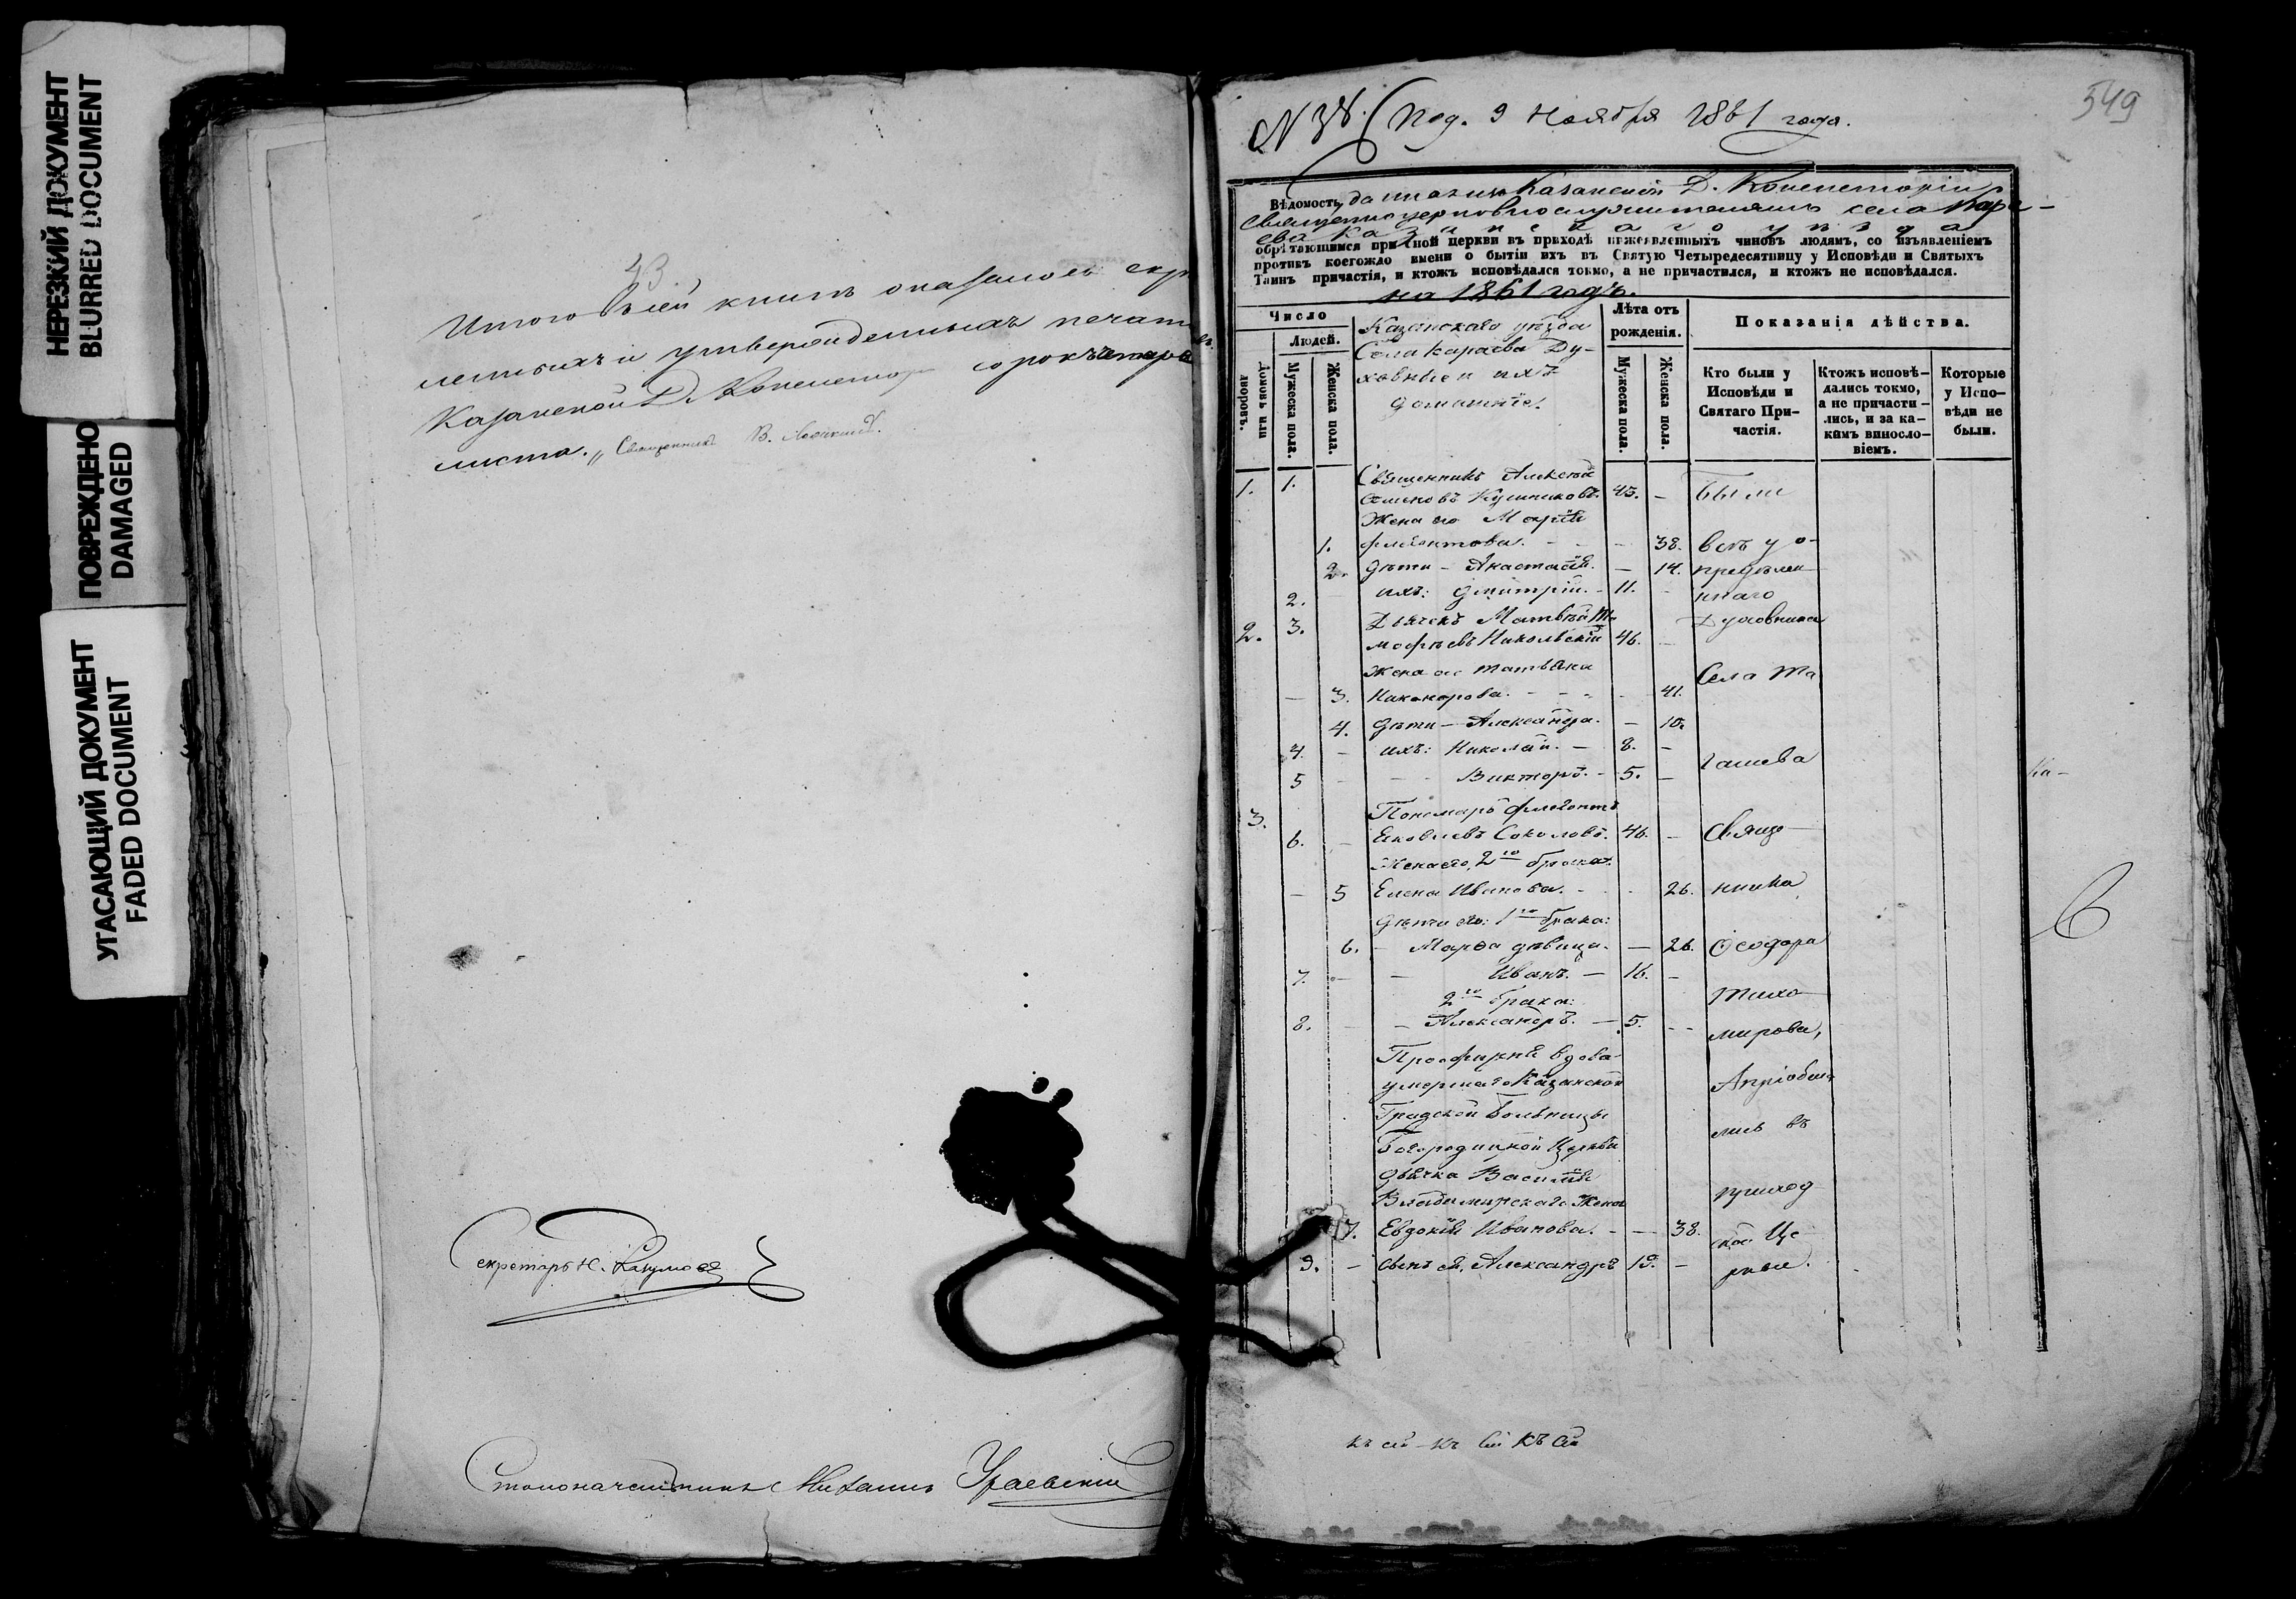 НЕРЕЗКИЙ ДОКУМЕНТ
BLURRED DOCUMENT
ПОВРЕЖДЕНО
DAMAGED
УГАСАЮЩИЙ ДОКУМЕНТ
FADED DOCUMENT
43
Итого въ сей книгѣ оказалось скрѣ
Казанской Д. Консистор сорокъ
листа. „ Священникъ В.
Секретарь Н. Разумовъ
Столоначальникъ Михаилъ Ураевскій
549
N 38. Под. 9 Ноября 1861 года.
Вѣдомость, данная изъ Казанской Д. Консисторіи
священноцерковнослужителямъ села Кара-
ева Казанскаго уѣзда
обрѣтающимся при оной церкви въ приходѣ нижеявленныхъ чиновъ людямъ, со изъявленіемъ
противъ коегождо имени о бытіи ихъ въ Святую Четыредесятницу у Исповѣди и Святыхъ
Таинъ причастія, и ктожъ исповѣдался токмо, а не причастился, и ктожъ не исповѣдался.
на 1861 годъ.
Число
Людей.
Домовъ или дворовъ.
Мужеска пола.
Женска пола.
Казанскаго уѣзда
Села Караева Ду-
ховные и ихъ
домашніе.
Лѣта отъ рожденія.
Мужеска пола.
Женска пола.
Показанія дѣйства.
Кто были у Исповѣди и Святаго При-частія.
Ктожъ исповѣ-дались токмо, а не причасти-лись, и за ка-кимъ винослo-віемъ.
Которые у Испо-вѣди не были.
1. 1. Священникъ Алексѣй
Семеновъ 45. – Были
Жена его Марія
1. Филіоктова. – – 38. всѣ у о-
2. Дѣти – Анастасія. – 14. предѣлен
2. – ихъ: Димитрій. – 11. – ннаго
2. 3. Дьячекъ Матвѣй Ти Духовника
мофѣевъ Никольскій 46. –
Жена его Татьяна Села Та
– 3. Никонорова. – – 41.
4. Дѣти – Александра. – 10.
4. – ихъ: Николай. – 8. –
5 – – Викторъ. – 5. – гашева
3. Пономарь Флегонтъ
6. – Яковлевъ Соколовъ. 46. – Свяще
Жена его, 2го брака:
– 5 Елена Иванова. – – 26. нника
Дѣти его: 1го брака:
6. – Марѳа дѣвица. – 26. Ѳеодора
7. – – Иванъ. – 16. –
2го брака: Тихо
8. – – Александръ. – 5. – мирова,
Просфирня вдова
умершаго Казанской Апріобща
Градской Больницы
Богородицкой Церкви лись въ
дьячка Василія
Владимирскаго Жена приход
7. Евдокія Иванова. – – 38. ской Це
9. – Сынъ ея, Александръ 19. – ркви.
Ка-
къ сей къ сей къ сей